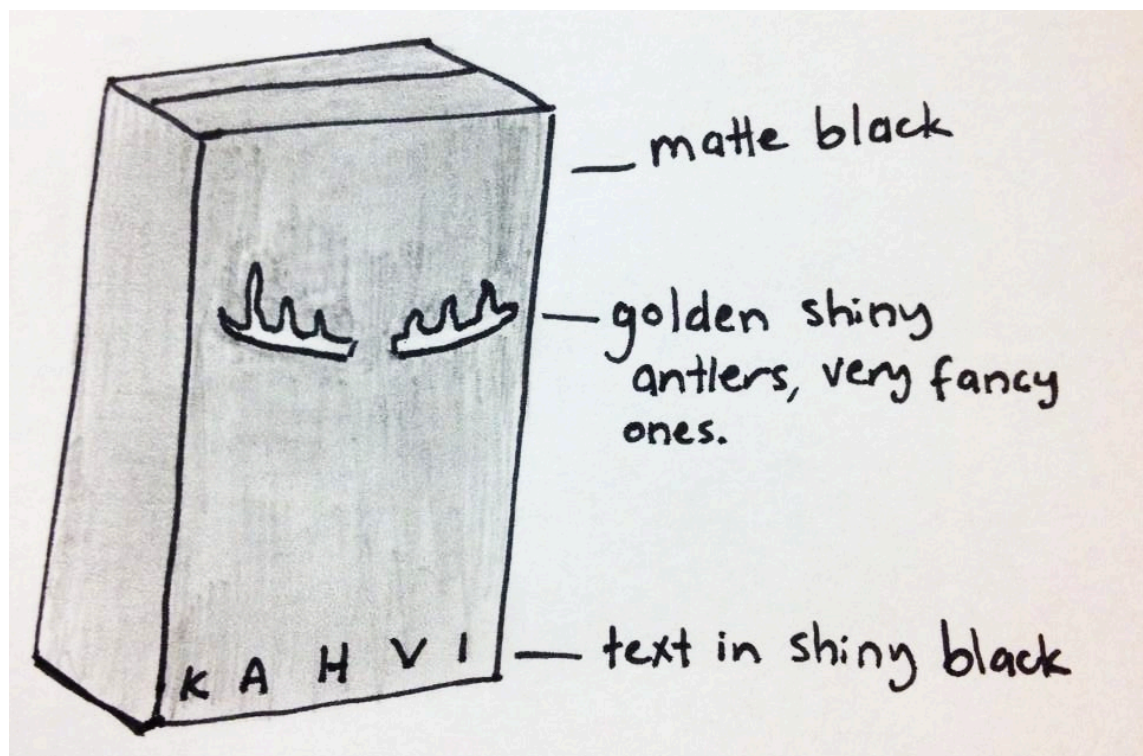 matte black
golden shiny
antlers, very fancy
ones.
K A H V I
text in shiny black